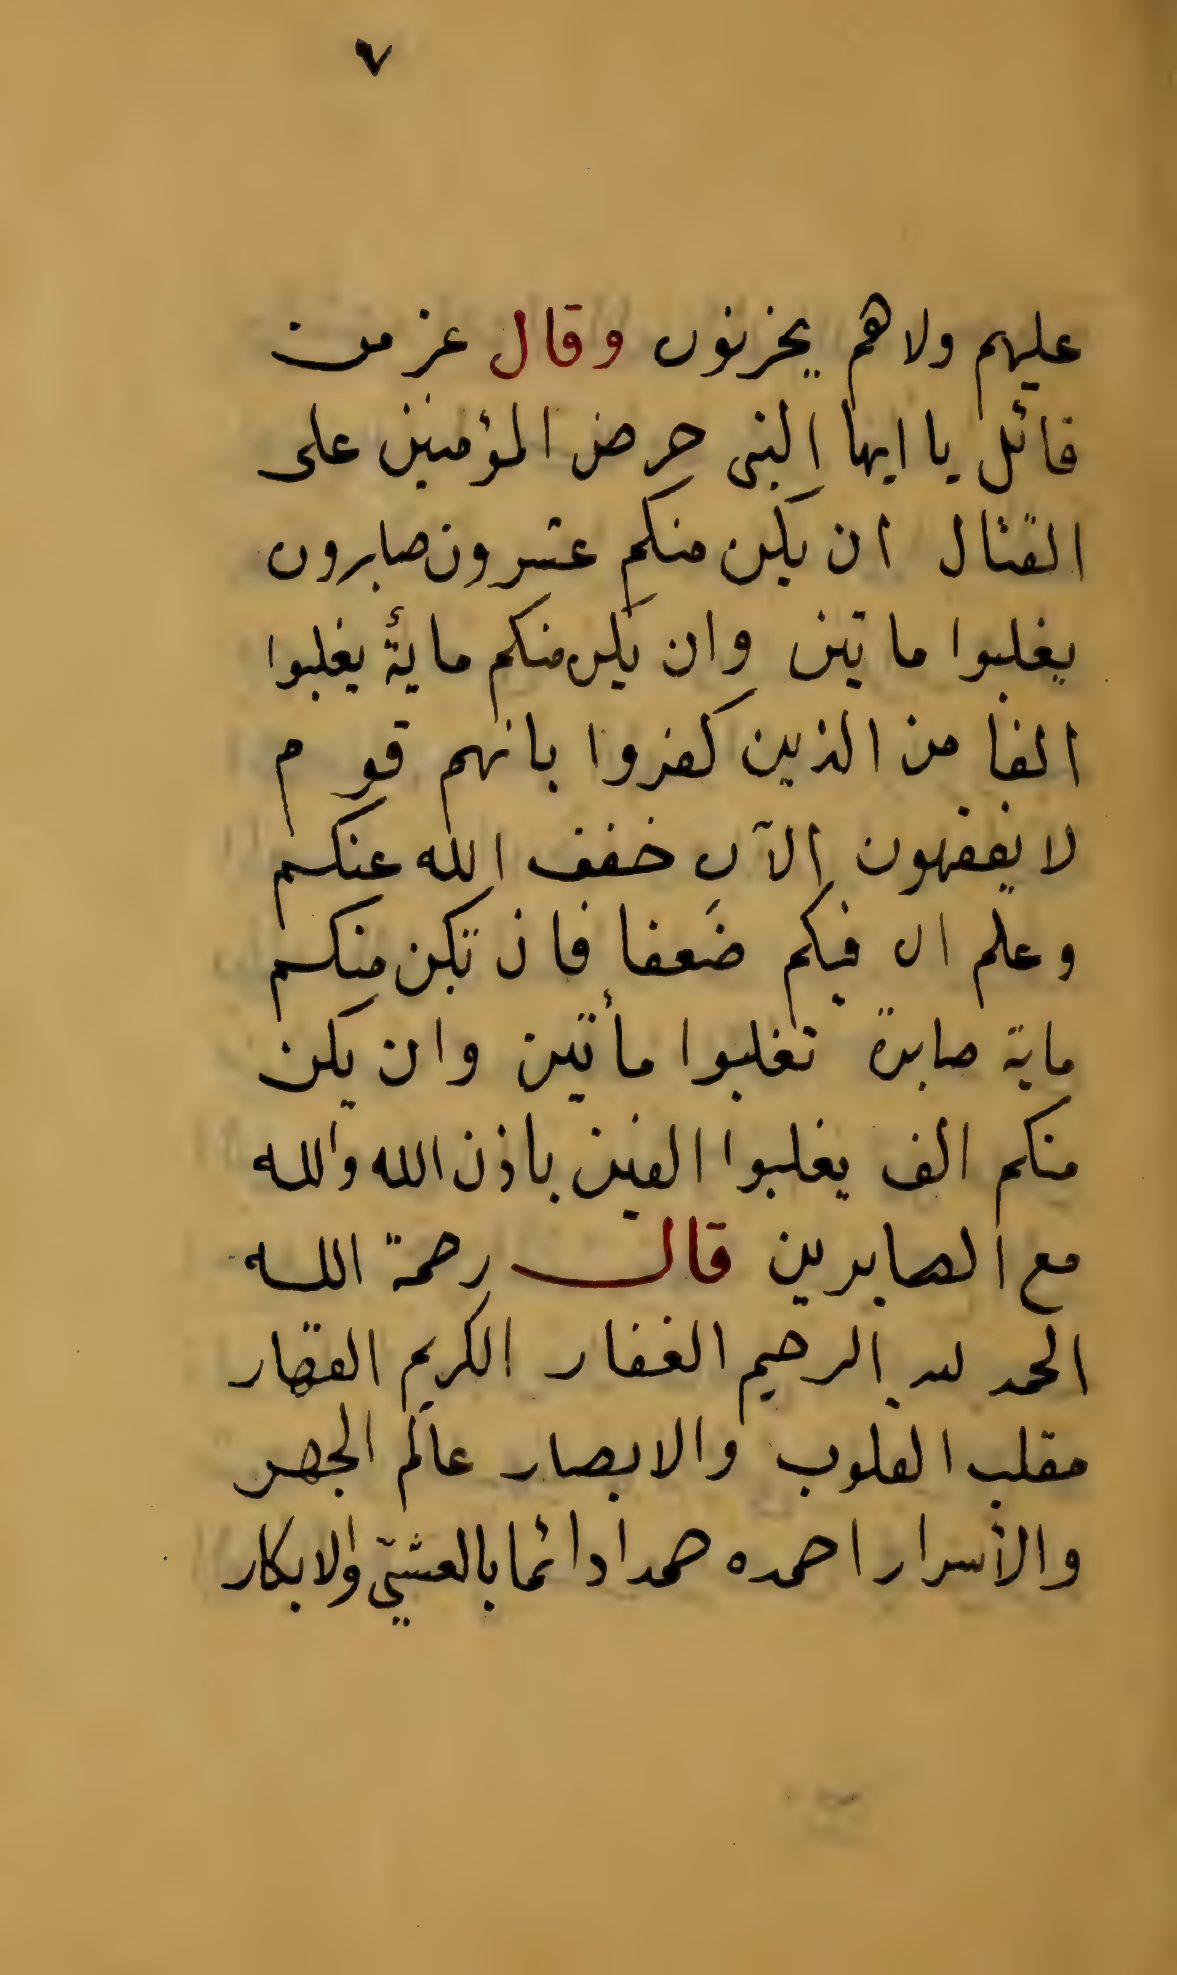 ٧
عليهم ولا هم يحزنون وقال عز من
قائل يا ايها النبى حرض المؤمنين على
القتال ان يكن منكم عشرون صابرون
يغلبوا ماتين وان يكن منكم مائة يغلبوا
الفا من الذين كفروا بانهم قوم
لا يفقهون الآن خفف الله عنكم
وعلم ان فيكم ضَعفا فان تكن منكم
ماية صابرة تغلبوا مأتين وان يكن
منكم الف يغلبوا الفين باذن الله والله
مع الصابرين قال رحمة الله
الحمد لله الرحيم الغفار الكريم القهار
مقلب القلوب والابصار عالم الجهر
والأسرار احمده حمدا دائما بالعشيّ والابكار